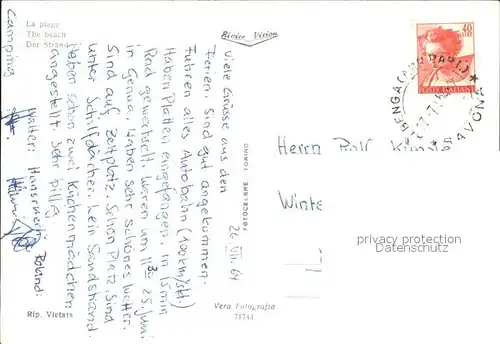 La plage
The beach
Der Strand
Rivier Vision
40
LIRE
POSTE ITALIANE
SAVONA
Camping
26. VII. 64
Viele Grüsse aus den
Ferien. Sind gut angekommen.
Fuhren alles Autobahn (100km/std)
Haben Platten eingefangen, in 15 min
Rad gewechselt. Waren um 11 30 25. Juni
in Genua. Haben sehr schönes Wetter.
Sind auf Zeltplatz. Schön Platz. Sind
unter Schilfdächer. Kein Sandstrand.
Haben schon zwei Küchenmädchen
angestellt. Sehr billig
Walter: Hansruedi: Roland:
FOTOCELERE TORINO
Herrn Rolf
Winte
privacy protection
Datenschutz
Vera Fotografia
71744
Rip. Vietata